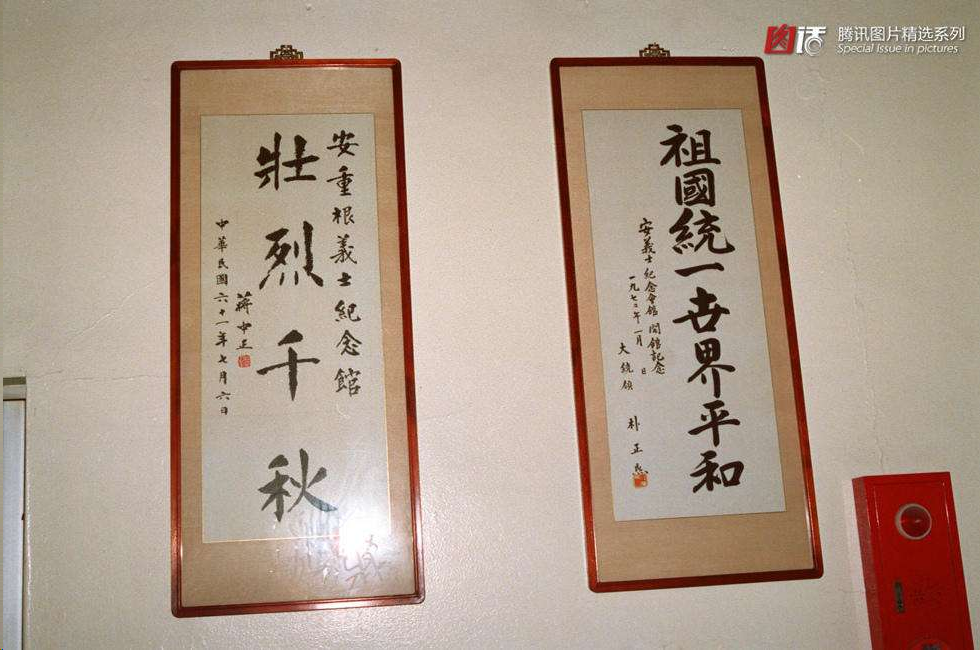 图话
腾讯图片精选系列
Special Issue in pictures
安重根義士紀念館
壯烈千秋
蔣中正
中華民國六十一年七月六日
祖國統一世界平和
安義士紀念會館 開館記念
一九七二年 一月 日
大統領 朴正熙